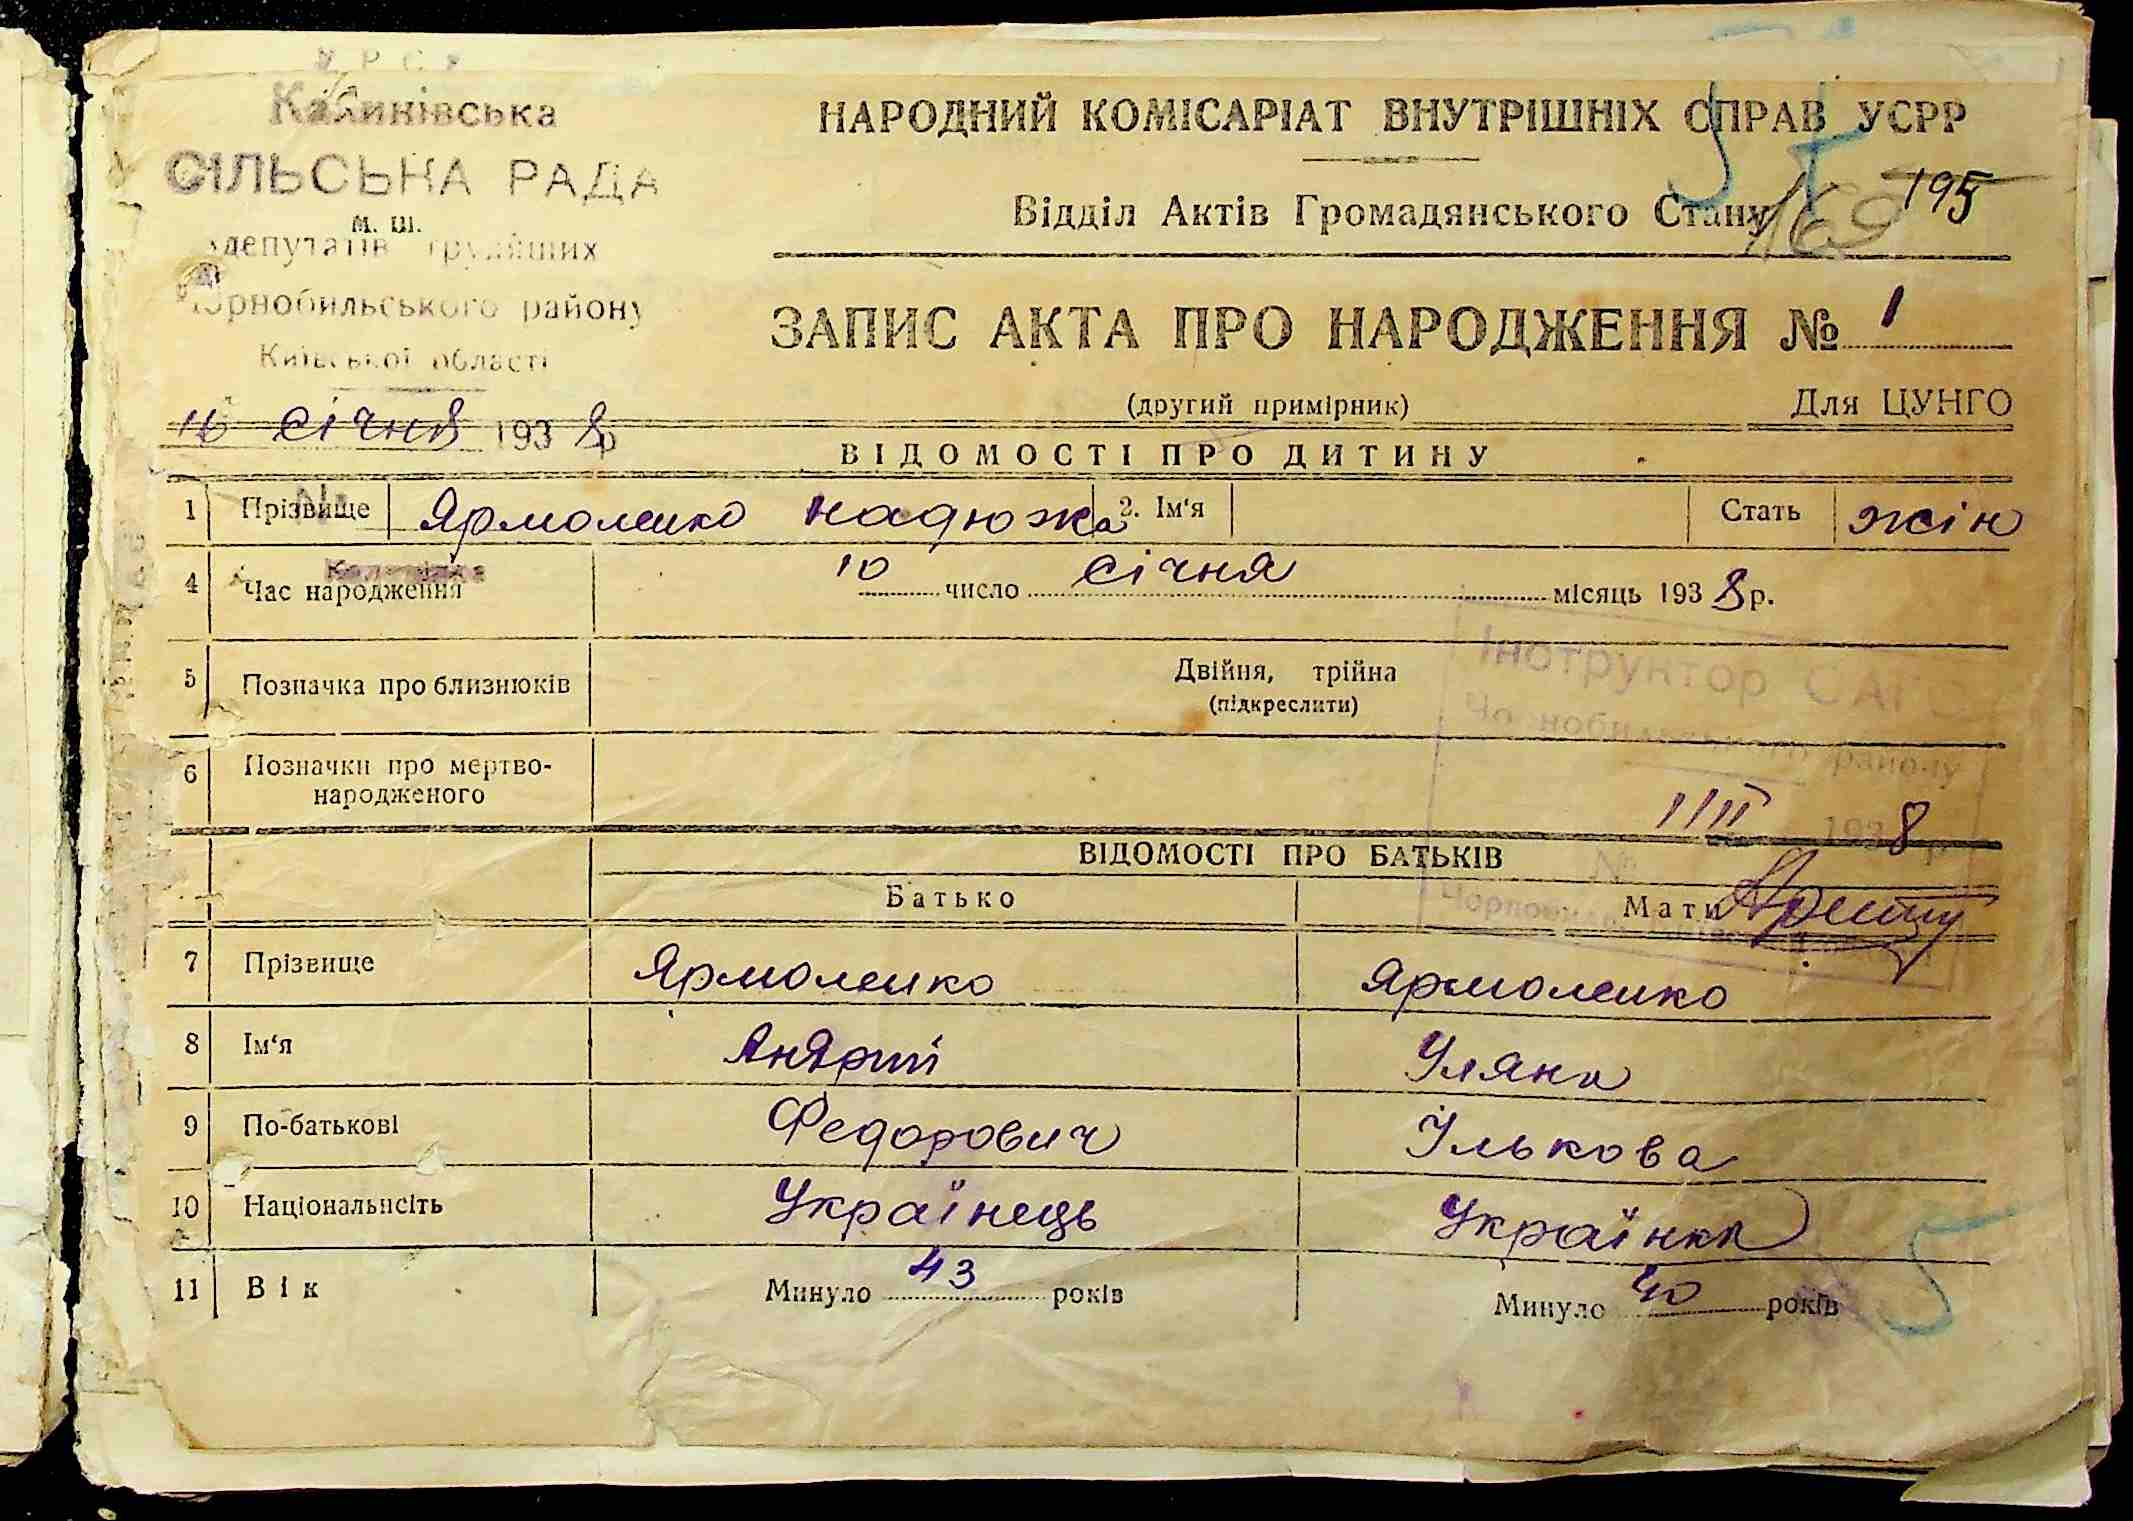 У Р С Р
Калинівська
СІЛЬСЬКА РАДА
м. Ш.
депутатів трудящих
Чорнобильського району
Київської області
16 січня 1938 р
НАРОДНИЙ КОМІСАРІАТ ВНУТРІШНІХ СПРАВ УСРР
Відділ Актів Громадянського Стану
169 195
ЗАПИС АКТА ПРО НАРОДЖЕННЯ № 1
(другий примірник) Для ЦУНГО
ВІДОМОСТІ ПРО ДИТИНУ
1 Прізвище Ярмоленко Надюжа 2. Ім'я Стать жін
4 Час народження 10 число січня місяць 1938 р.
5 Позначка про близнюків Двійня, трійна
(підкреслити)
Інструктор САГС
Чорнобильського району
6 Позначки про мертво-
народженого
1/II 1938 р
ВІДОМОСТІ ПРО БАТЬКІВ
№
Батько Мати
7 Прізвище Ярмоленко Ярмоленко
8 Ім'я Андрій Уляна
9 По-батькові Федорович Ількова
10 Національність Українець Українка
11 Вік Минуло 43 років Минуло 40 років